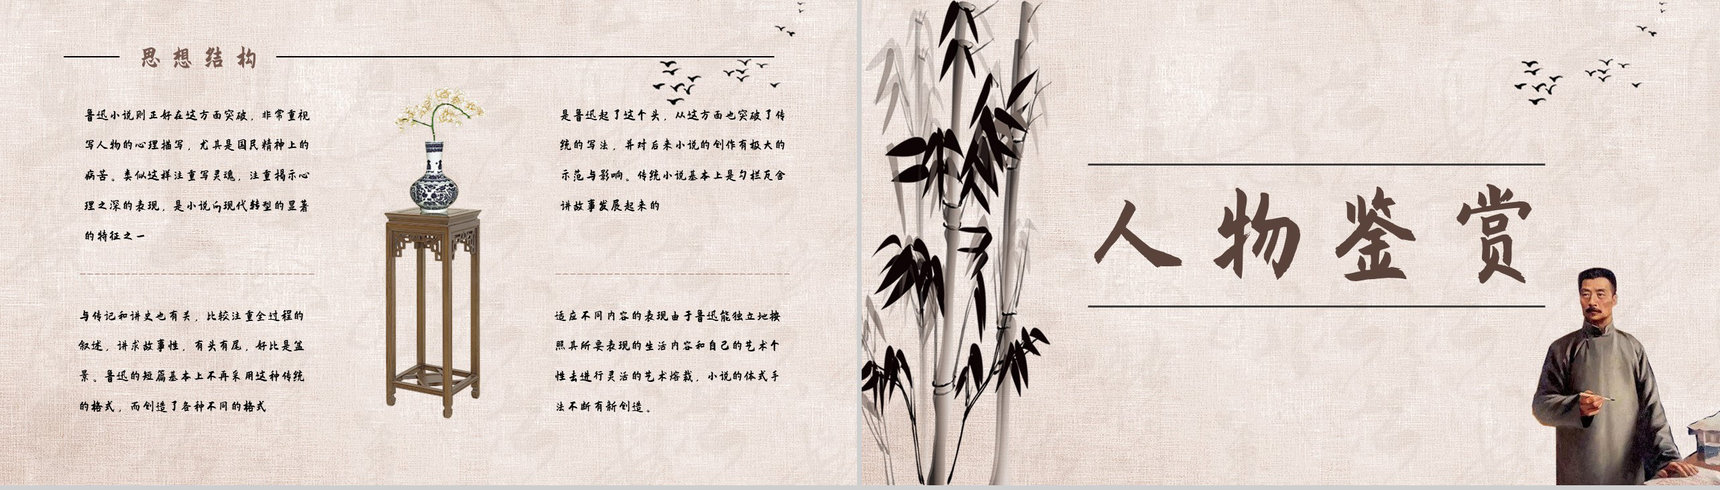 思想结构
鲁迅小说则正好在这方面突破，非常重视
写人物的心理描写，尤其是国民精神上的
病苦。类似这样注重写灵魂，注重揭示心
理之深的表现，是小说向现代转型的显著
的特征之一
是鲁迅起了这个头，从这方面也突破了传
统的写法，并对后来小说的创作有极大的
示范与影响。传统小说基本上是勾栏瓦舍
讲故事发展起来的
与传记和讲史也有关，比较注重全过程的
叙述，讲求故事性，有头有尾，好比是盆
景。鲁迅的短篇基本上不再采用这种传统
的格式，而创造了各种不同的格式
适应不同内容的表现由于鲁迅能独立地按
照其所要表现的生活内容和自己的艺术个
性去进行灵活的艺术熔裁，小说的体式手
法不断有新创造。
人物鉴赏